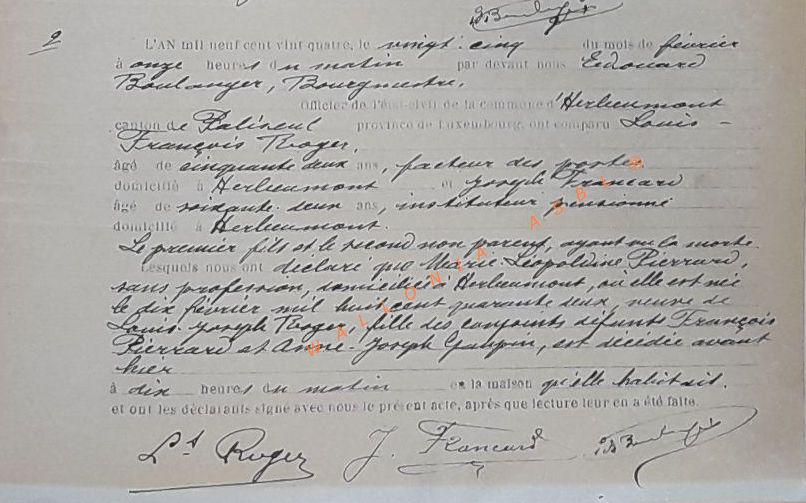 2
L'AN mil neuf cent vint quatre, le vingt-cinq du mois de février
à onze heures du matin par devant nous Edouard
Boulanger, Bourgmestre,
Officier de l'état-civil de la commune d'Herbeumont
canton de Paliseul province de Luxembourg, ont comparu Louis-
François Roger,
âgé de cinquante deux ans, facteur des postes
domicilié à Herbeumont et Joseph Francard
âgé de soixante-deux ans, instituteur pensionné
domicilié à Herbeumont.
Le premier fils et le second non parent, ayant vu la morte.
Lesquels nous ont déclaré que Marie-Léopoldine Pierrard,
sans profession, domiciliée à Herbeumont, où elle est née
le dix février mil huit cent quarante deux, veuve de
Louis-Joseph Roger, fille des conjoints défunts François
Pierrard et Anne-Joseph est décédée avant
hier
à dix heures du matin en la maison qu'elle habitait.
et ont les déclarants signé avec nous le présent acte, après que lecture leur en a été faite.
Ls Roger J. Francard
WALLONIA ASBL